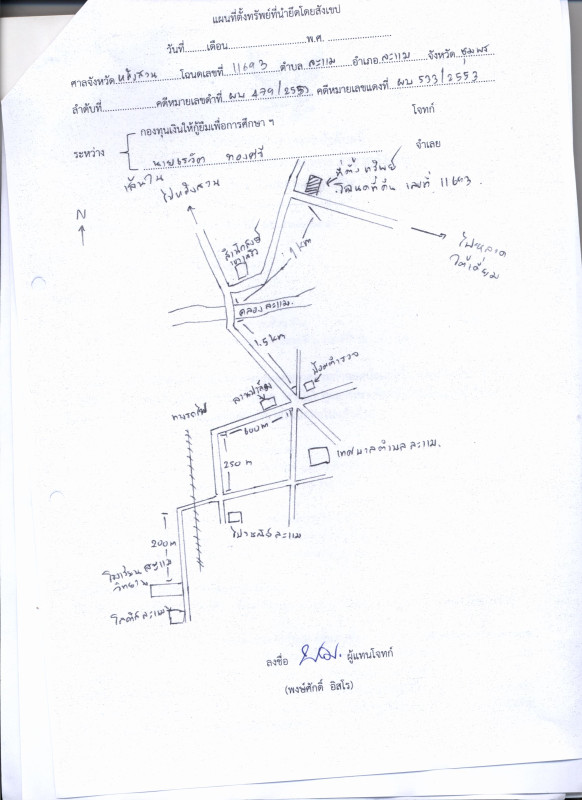 แผนที่ตั้งทรัพย์ที่นำยึดโดยสังเขป
วันที่..........เดือน..............................พ.ศ. ..........................
ศาลจังหวัด หลังสวน โฉนดเลขที่ 11693 ตำบล ละแม อำเภอ ละแม จังหวัด ชุมพร
ลำดับที่...............คดีหมายเลขดำที่ ผบ 479/2553 คดีหมายเลขแดงที่ ผบ 533/2553
กองทุนเงินให้กู้ยืมเพื่อการศึกษา ฯ โจทก์
ระหว่าง
นาย ทองศรี จำเลย
ที่ตั้งทรัพย์
โฉนดที่ดิน เลขที่ 11693.
ไปหลังสวน
N
สำนักสงฆ์
1 km
ไปหาด
คลองละแม.
1.5 km
ป้อมตำรวจ
ทางรถไฟ
600 m
เทศบาลตำบลละแม.
250 m
ไปรษณีย์ละแม
200 m
โรงเรียน ละแม
วิทยา
โลตัส ละแม
ลงชื่อ ผู้แทนโจทก์
(พงษ์ศักดิ์ อิสโร)